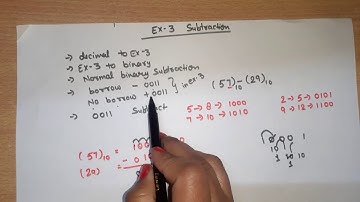 Ex-3 Subtraction
→ decimal to Ex-3
→ Ex-3 to binary
→ Normal binary Subtraction
→ borrow - 0011 } in ex.3
No borrow +0011
(57)₁₀ - (29)₁₀
→ 0011 Subtract
5 → 8 → 1000
7 → 10 → 1010
2 → 5 → 0101
9 → 12 → 1100
(57)₁₀ = 100
(29) = - 010
0 0 1
10 10
1 1
1